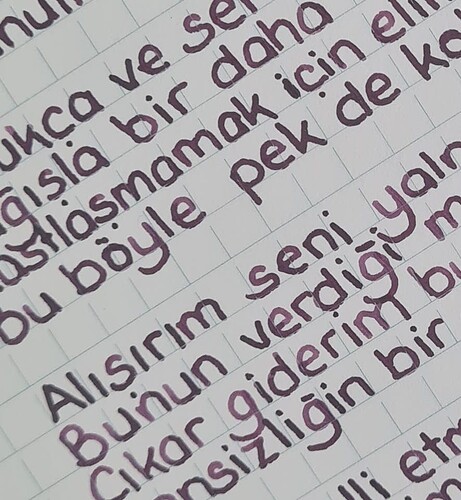 ukca ve se
ğısla bir daha
astlasmamak icin elin
bu böyle pek de ko
Alısırım seni yaln
Bunun verdiği m
Cıkar giderim bu
ensizliğin bir
lli etm